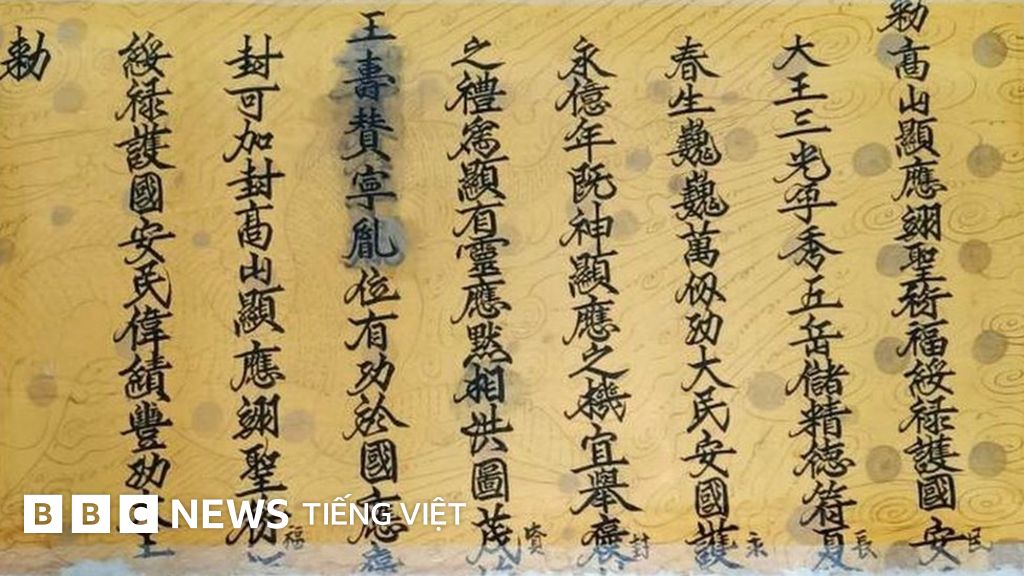 勅高山顯應翊聖衍福綏禄護國安民
大王三光孕秀五岳儲精德符長
春生巍巍萬仞功大民安國護永
永億年既神顯應之機宜舉褒封
之禮爲顯有靈應默相洪圖茂賚
王壽贊寧胤位有功於國應
封可加封高山顯應翊聖衍福
綏禄護國安民偉績豐功大王
勅
BBC NEWS TIẾNG VIỆT